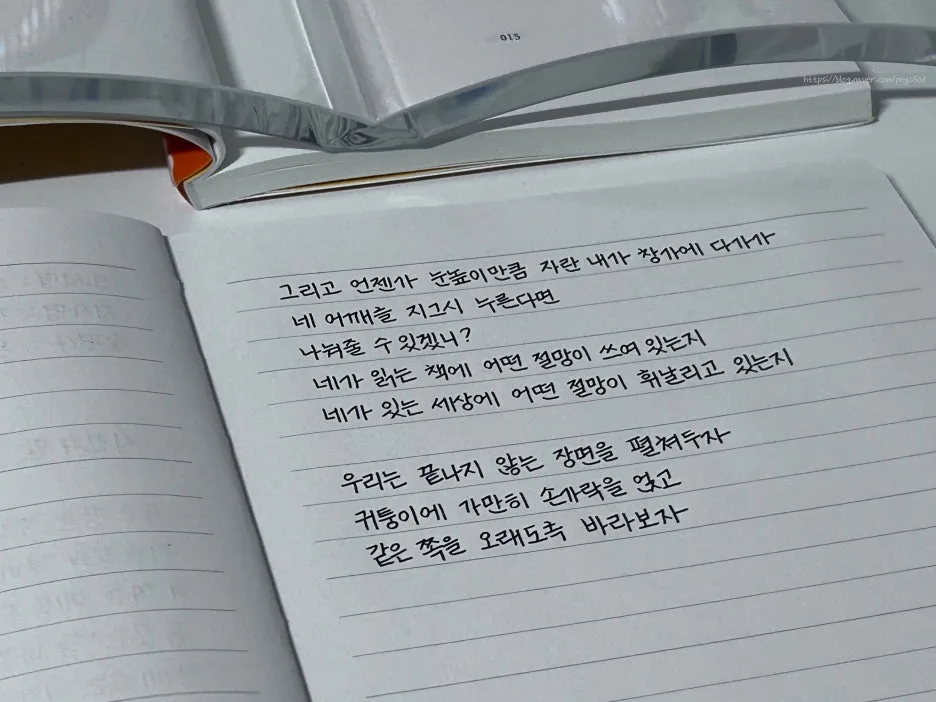 015
https://blog.naver.com/pcg0508
그리고 언젠가 눈높이만큼 자란 내가 창가에 다가가
네 어깨를 지그시 누른다면
나눠줄 수 있겠니?
네가 읽는 책에 어떤 절망이 쓰여 있는지
네가 있는 세상에 어떤 절망이 휘날리고 있는지
우리는 끝나지 않는 장면을 펼쳐두자
귀퉁이에 가만히 손가락을 얹고
같은 쪽을 오래도록 바라보자